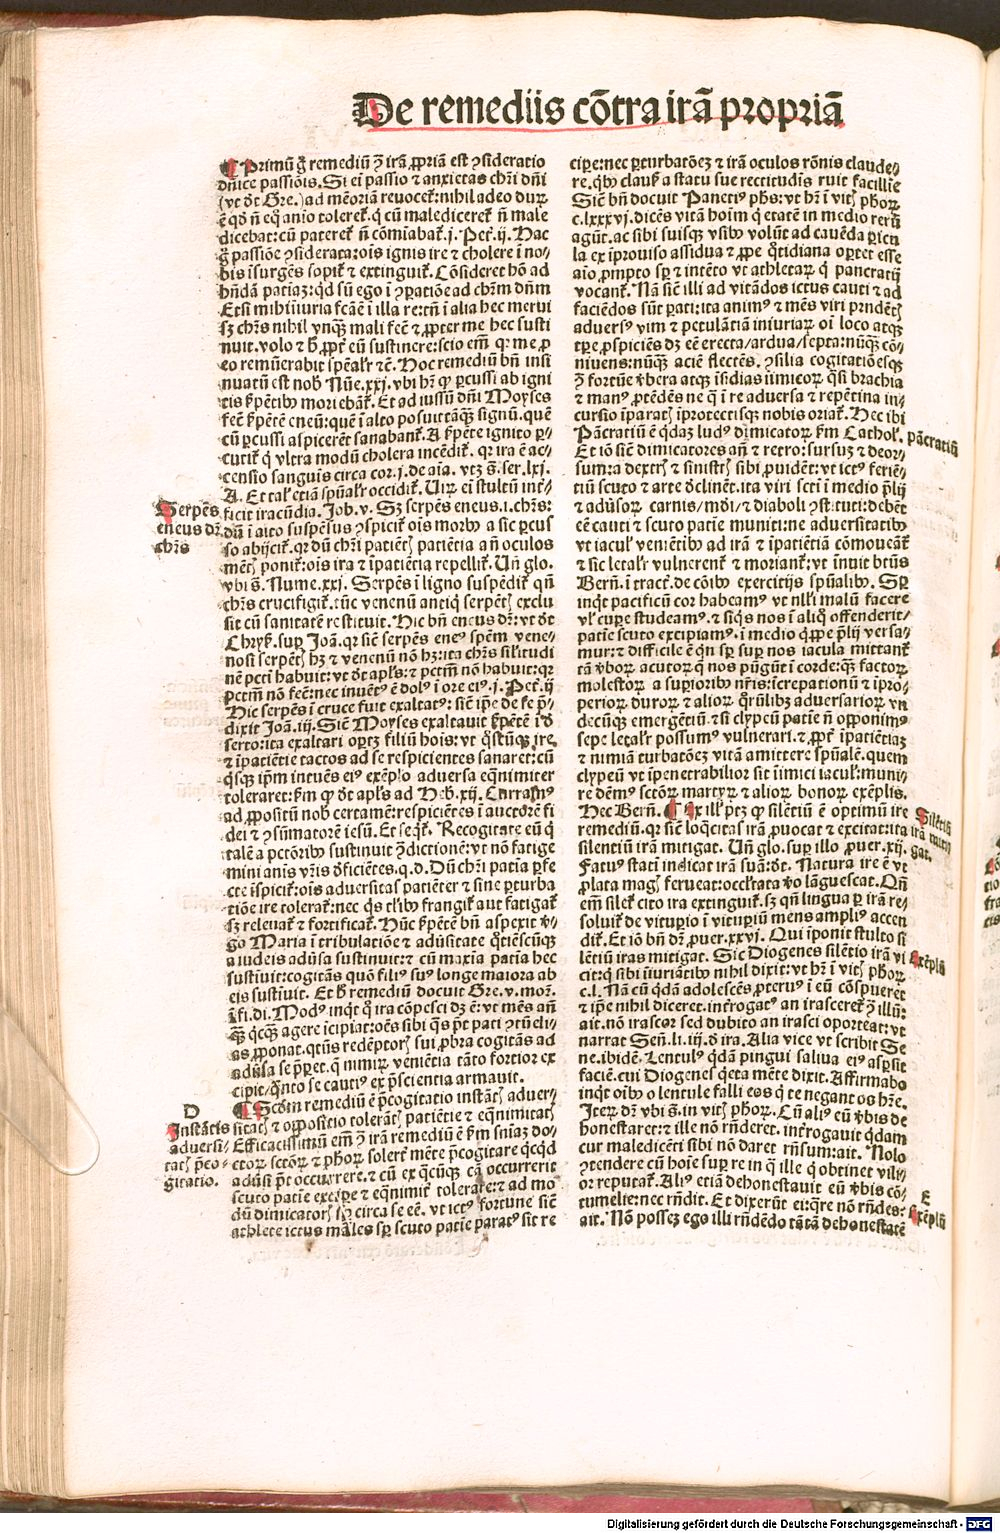 De remediis cōtra irā propriā
¶ Primū ḡ remediū ꝯ irā ꝓpriā est ꝯsideratio
dn̄ice passiōis. Si eī passio ⁊ anxietas chr̄i dn̄i
(vt dt̄ Gre.) ad mēoriā revocet̄: nihil adeo duꝝ
ē qd̄ nō eq̄ anio toleret̄. q̇ cū malediceret̄ nō male
dicebat: cū pateret̄ nō cōmiabat̄. j. Pet̄. ij. Hac
ḡ passiōe ꝯsiderata: oīs ignis ire ⁊ cholere ī no/
bis īsurgēs sopit̄ ⁊ extinguit̄. Cōsideret hō ad
hn̄dā patiaꝫ: qd̄ sū ego ī ꝯparatiōe ad chr̄m dn̄m
Etsi mihi iniuria fcā ē ī illa re: tn̄ ī alia hec merui
sꝫ chr̄s nihil vnqꝫ mali fecit ⁊ ꝓpter me hec susti
nuit. volo ⁊ h̄ ꝓpt̄ eū sustinere: scio em̄ qr me ꝓ
eo remūerabit sp̄ealr ⁊c̄. Hoc remediū bn̄ insi
nuatū est nob̄ Nūe. xxj. vbi hr̄ ꝙ ꝑcussi ab igni
tis ẜpētibꝰ moriebant̄. Et ad iussū dn̄i Moyses
fecit ẜpētē eneū: quē ī alto posuit tāqꝫ signū. quē
cū ꝑcussi aspicerēt sanabant̄. A ẜpēte ignito ꝑ/
cutit̄ q̇ vltra modū cholera incēdit̄. qr ira ē ac/
censio sanguis circa cor. j. de aīa. vtꝫ s̄. ser. lxj.
A. Et talr etiā sp̄ualr occidit̄. Uirꝝ eī stultū int̄/
ficit iracūdia. Job. v. Sꝫ serpēs eneus. i. chr̄s:
dū ī alto suspēsus ꝯspicit̄ oīs morbꝰ a sic ꝑcus
so abijcit̄. qr dū chr̄i patiētꝭ patiētia añ oculos
mētꝭ ponit̄: oīs ira ⁊ īpatiētia repellit̄. Un̄ glo.
vbi s̄. Nume. xxj. Serpēs ī ligno suspēdit̄ qn̄
chr̄s crucifigit̄. tūc venenū antiq̇ serpētꝭ exclu
sit cū sanitatē restituit. Hic bn̄ eneus dr̄: vt dt̄
Chryẜ. suꝑ Joā. qr sic̄ serpēs eneꝰ spēm vene/
nosi serpētꝭ hꝫ ⁊ venenū nō hꝫ: ita chr̄s sil̄itudi
nē pcti habuit: vt dt̄ apl̄s: ⁊ pctm̄ nō habuit: qr
pctm̄ nō fecit: nec inuētꝰ ē dolꝰ ī ore eiꝰ. j. Pet̄. ij
Hic serpēs ī cruce fuit exaltatꝰ: sic̄ ip̄e de se p̄/
dixit Joā. iij. Sic̄ Moyses exaltauit ẜpētē ī d̄
serto: ita exaltari oꝑtꝫ filiū hois: vt q̇stūqꝫ ire
⁊ īpatiētie tactos ad se respicientes sanaret: cū
q̇sqꝫ ip̄m intuēs eiꝰ exēplo aduersa eq̄nimiter
toleraret: ẜm ꝙ dt̄ apl̄s ad Heb̄. xij. Curramꝰ
ad ꝓpositū nob̄ certamē: respiciētes ī auctorē fi
dei ⁊ ꝯsūmatorē iesū. Et seqt̄. Recogitate eū q̇
talē a pctōribꝰ sustinuit ꝯdictionē: vt nō fatige
mini anīs vr̄is d̄ficiētes. q. d. Dū chr̄i patia ꝑfe
cte īspicit̄: oīs adversitas patiēter ⁊ sine ꝑturba
tiōe ire tolerat̄: nec q̇s tl̄ibꝰ frangit̄ aut fatigat̄
sꝫ releuat̄ ⁊ fortificat̄. Hūc ẜpētē bn̄ aspexit v̄/
go Maria ī tribulatiōe ⁊ aduersitate q̇tiēscūqꝫ
a iudeis adūsa sustinuit: ⁊ cū maxia patia hec
sustiuit: cogitās quō filiꝰ suꝰ longe maiora ab
eis sustiuit. Et h̄ remediū docuit Gre. v. mor̄.
ī fi. di. Modꝰ inqt̄ q̇ ira cōpesci dꝫ ē: vt mēs añ
qꝫ qcqꝫ agere īcipiat: oēs sibi q̄s pt̄ pati ꝯtūeli/
as ꝓponat. qtūs redēptorꝭ sui ꝓbra cogitās ad
adūsa se p̄ꝑet. q̇ nimiꝝ veniētia tāto fortior ex
cipit/ q̇nto se cautiꝰ ex p̄scientia armauit.
¶ Scdm remediū ē p̄cogitatio instātꝭ aduer/
sitatꝭ ⁊ oppositio tolerātꝭ patiētie ⁊ eq̄nimitatꝭ
Efficacissimū em̄ ꝯ irā remediū ē ẜm sniaꝫ do/
ctoꝝ sctōꝝ ⁊ ph̄oꝝ solert̄ mēte p̄cogitare qcqd̄
adūsi pt̄ occurrere. ⁊ cū ex qcūqꝫ cā occurrerit
scuto patie excipe ⁊ eq̄nimit̄ tolerare: ⁊ ad mo
dū dimicatorꝭ sp̄ circa se eē. vt ictꝰ fortune sic̄
athlete ictus māles sp̄ scuto patie paratꝰ sit re
Serpēs
eneus dr̄.
chr̄s
D
Instātis
adversi/
tatꝭ p̄co/
gitatio.
cipe: nec ꝑturbatōeꝫ ⁊ irā oculos rōnis claude/
re. qbꝰ clausꝭ a statu sue rectitudīs ruit facillie
Sic̄ bn̄ docuit Panetiꝰ ph̄s: vt hr̄ ī vitꝭ ph̄oꝝ
c. lxxxvj. dicēs vitā hoīm q̇ etatē in medio rerū
agūt. ac sibi suisqꝫ vsibꝰ volūt ad cauēda ꝑicu
la ex īprouiso assidua ⁊ ꝓpe q̇tidiana oꝑtet esse
aio ꝓmpto sp̄ ⁊ intēto vt athletaꝝ q̇ pancratij
vocant̄. Nā sic̄ illi ad vitādos ictus cauti ⁊ ad
faciēdos sūt ꝑati: ita animꝰ ⁊ mēs viri prudētꝭ
adversꝰ vim ⁊ petulātiā iniuriaꝝ oī loco atqꝫ
tꝑe ꝓspiciēs dꝫ eē erecta/ ardua/ septa: nūqꝫ cō/
niuens: nūqꝫ aciē flectēs. ꝯsilia cogitatiōesqꝫ
ꝯ fortūe v̄bera atqꝫ īsidias inimicoꝝ q̇si brachia
⁊ manꝰ ꝓtēdēs ne q̇ ī re adversa ⁊ repētina in/
cursio īparatꝭ īprotectisqꝫ nobis oriat̄. Hec ibi
Pācratiū ē qdaꝫ ludꝰ dimicatoꝝ ẜm Cathol̄.
Et iō sic̄ dimicatores añ ⁊ retro: sursuꝫ ⁊ deor/
sum: a dextrꝭ ⁊ sinistrꝭ sibi ꝓuidēt: vt ictꝰ feriē/
tiū scuto ⁊ arte d̄clinēt. ita viri scti ī medio p̄lij
⁊ adūsoꝝ carnis/ mūdi/ ⁊ diaboli ꝯstituti: debēt
eē cauti ⁊ scuto patie muniti: ne aduersitatibꝰ
vt iaculꝭ veniētibꝰ ad irā ⁊ īpatiētiā cōmoueāt̄
⁊ sic letalr vulnerent̄ ⁊ moriant̄: vt īnuit btūs
Bern̄. ī tract̄. de cōibꝰ exercitijs sp̄ualibꝰ. Sp̄
inqt̄ pacificū cor habeamꝰ vt nl̄li malū facere
vl̄ cuꝑe studeamꝰ. ⁊ siq̇s nos ī aliq̇ offenderit/
patie scuto excipiamꝰ. ī medio q̇ppe p̄lij versa/
mur: ⁊ difficile ē qn̄ sp̄ suꝑ nos iacula mittant̄
tā v̄boꝝ acutoꝝ q̇ nos pūgūt ī corde: qꝫ factoꝝ
molestoꝝ a suꝑioribꝰ nr̄is: īcrepationū ⁊ ipro/
perioꝝ duroꝝ ⁊ alioꝝ qrūlibꝫ adversarioꝝ vn
decūqꝫ emergētiū. ⁊ si clypeū patie nō opponimꝰ
sepe letalr possumꝰ vulnerari. ⁊ ꝓpt̄ īpatiētiaꝫ
⁊ nimiā turbatōeꝫ vitā amittere sp̄ualē. quem
clypeū vt īpenetrabilior sit inimici iaculꝭ: muni/
re dēmꝰ sctōꝝ martyꝝ ⁊ alioꝝ bonoꝝ exēplis.
Hec Bern̄. ¶ Ex illꝭ ptꝫ ꝙ silētiū ē optimū ire
remediū. qr sic̄ loq̄citas irā ꝓuocat ⁊ excitat: ita
silentiū irā mitigat. Un̄ glo. sup illo ꝓuer. xij.
Fatuꝰ stati indicat irā suā: dt̄. Natura ire ē vt
ꝓlata magꝭ ferueat: occltata v̄o lāguescat. Qn̄
em̄ silet̄ cito ira extinguit̄. sꝫ qn̄ lingua ꝑ irā re/
soluit̄ de vituꝑio ī vituꝑiū mens ampliꝰ accen
dit̄. Et iō bn̄ dr̄ ꝓuer. xxvj. Qui īponit stulto si
lētiū iras mitigat. Sic Diogenes silētio irā vi
cit: q̇ sibi iniuriātibꝰ nihil dixit: vt hr̄ ī vitꝭ ph̄oꝝ
c. l. Nā cū qdā adolescēs ꝓteruꝰ ī eū cōspueret
⁊ ip̄e nihil diceret. int̄rogatꝰ an irasceret̄ ꝯ illū:
ait. nō irascor sed dubito an irasci oporteat: vt
narrat Sen̄. li. iij. d̄ ira. Alia vice vt scribit Se
ne. ibidē. Lentulꝰ qdā pingui saliua eiꝰ asꝑsit
faciē. cui Diogenes q̇eta mēte dixit. Affirmabo
inqt̄ oibꝰ o lentule falli eos q̇ te negant os hr̄e.
Jteꝝ dr̄ vbi s̄. in vitꝭ ph̄oꝝ. Cū aliꝰ eū v̄bis de
honestaret: ⁊ ille nō rn̄deret. int̄rogauit qdam
cur maledicēti sibi nō daret rn̄sum: ait. Nolo
ꝯtendere cū hoīe suꝑ re in q̇ ille q̇ obtinet vili/
or reputat̄. Aliꝰ etiā dehonestauit eū v̄bis cō/
tumelie: nec rn̄dit. Et dixerūt ei: q̄re nō rn̄des:
ait. Nō possēꝫ ego illi rn̄dēdo tātā dehonestatē
pācratiū
Silētiū
irā miti
gat.
Exēplū
E
Exēplū
Digitalisierung gefördert durch die Deutsche Forschungsgemeinschaft - DFG